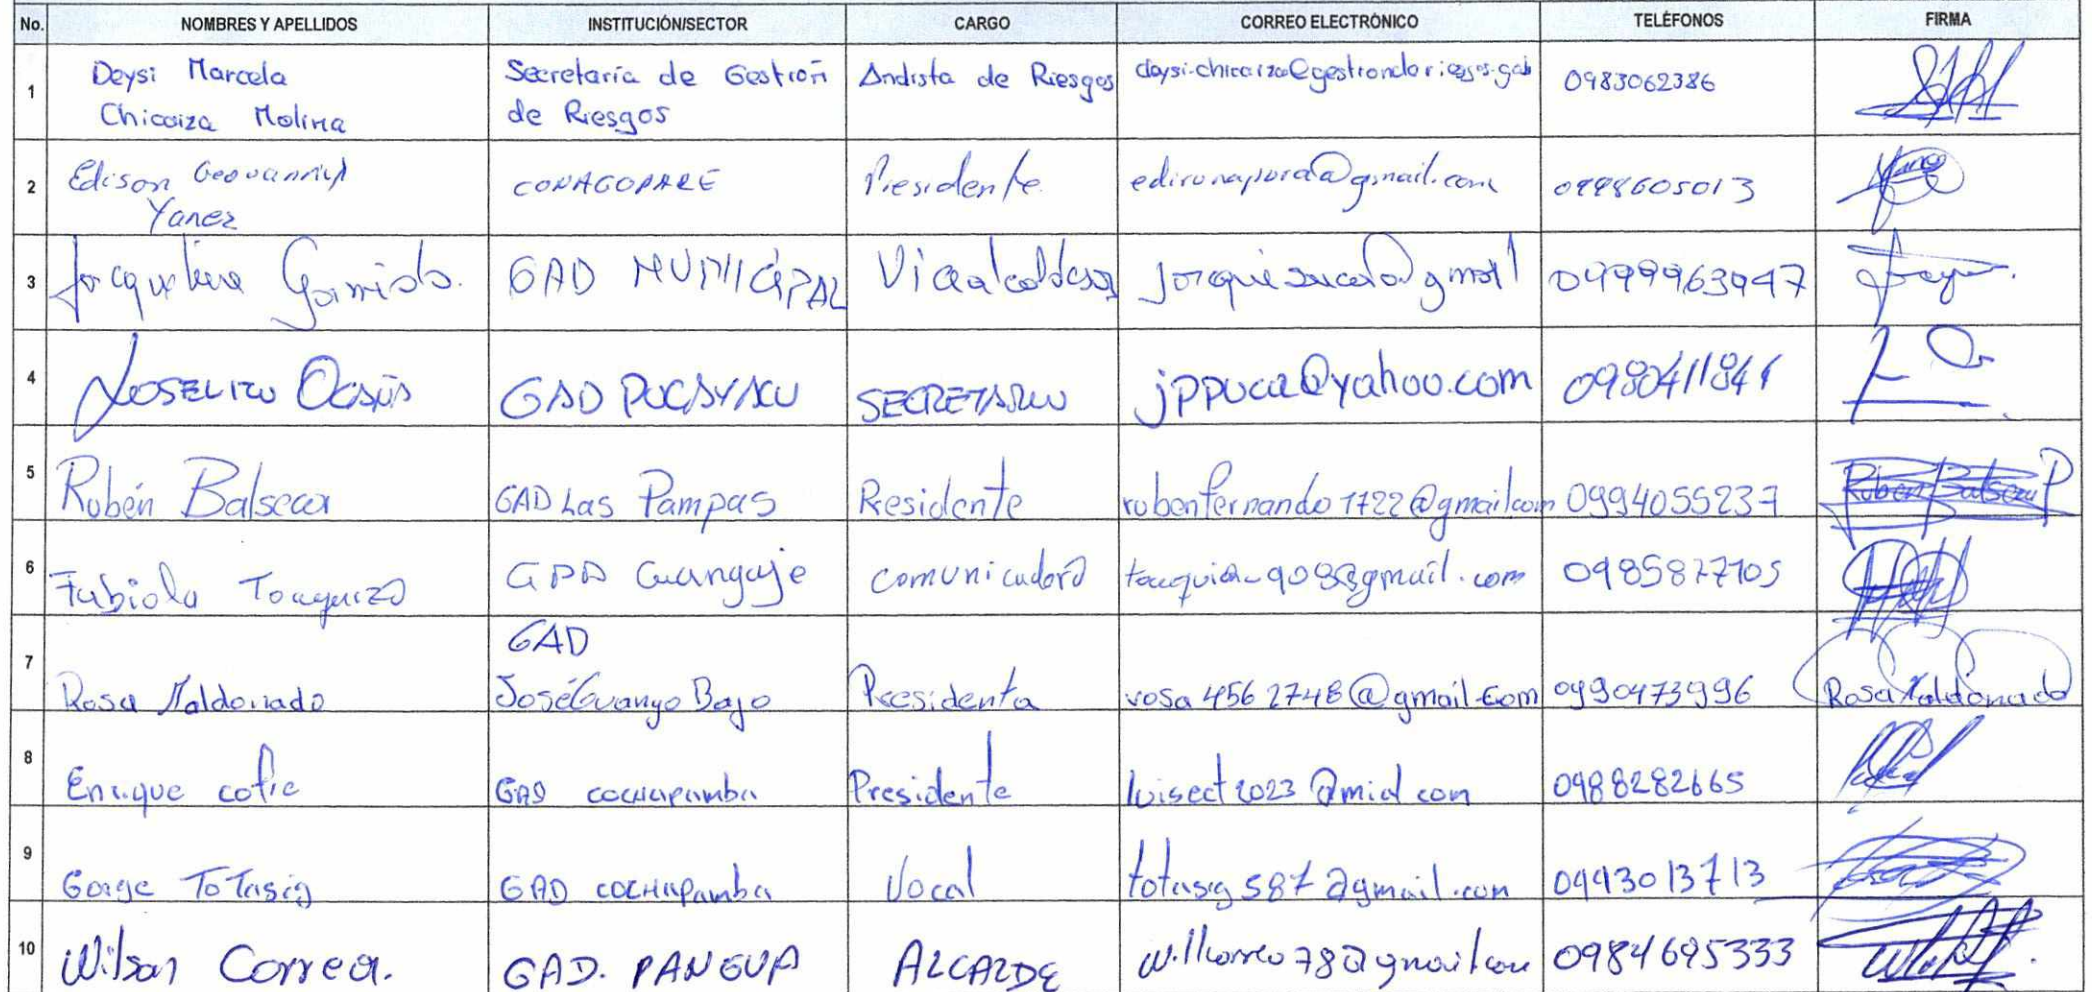 No. NOMBRES Y APELLIDOS INSTITUCIÓN/SECTOR CARGO CORREO ELECTRÓNICO TELÉFONOS FIRMA
1 Deysi Marcela Chicaiza Molina Secretaría de Gestión de Riesgos Analista de Riesgos 0983062386
2 Edison Geovanny Yanez CONAGOPARE Presidente 0998605013
3 Jacqueline GAD MUNICIPAL Vicealcaldesa 0999963947
4 GAD PUCAYACU SECRETARIO jppuca@yahoo.com 0980411841
5 Rubén Balseca GAD Las Pampas Presidente rubenfernando1722@gmail.com 0994055237 Ruben Balseca P
6 Fabiola Toaquiza GAD Guangaje comunicadora 0985877105
7 Rosa Maldonado GAD José Guango Bajo Presidenta rosa4562748@gmail.com 0990473996 Rosa Maldonado
8 Enrique GAD cochapamba Presidente 0988282665
9 Totasig GAD cochapamba Vocal totasig587@gmail.com 0993013713
10 Wilson Correa. GAD. PANGUA ALCALDE 0984695333